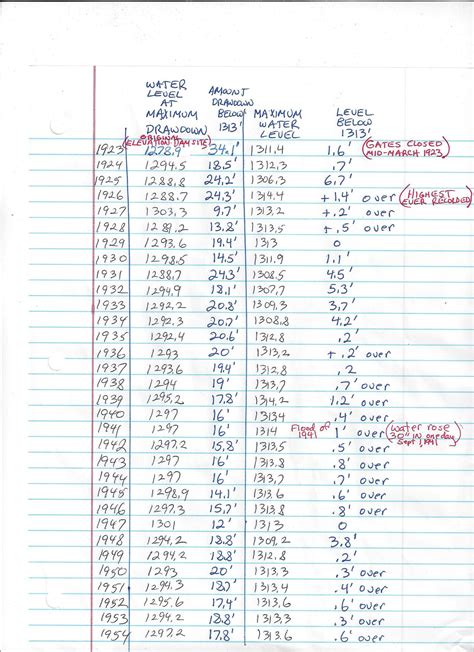 WATER LEVEL AT MAXIMUM DRAWDOWN AMOUNT DRAWDOWN BELOW 1313' MAXIMUM WATER LEVEL LEVEL BELOW 1313'
(ORIGINAL ELEVATION: DAM SITE)
1923 1278.9 34.1' 1311.4 1.6' (GATES CLOSED MID-MARCH 1923)
1924 1294.5 18.5' 1312.3 .7'
1925 1288.8 24.2' 1306.3 6.7'
1926 1288.7 24.3' 1314.4 +1.4' over (HIGHEST EVER RECORDED)
1927 1303.3 9.7' 1313.2 +.2' over
1928 1289.2 13.8' 1313.5 +.5' over
1929 1293.6 19.4' 1313 0
1930 1298.5 14.5' 1311.9 1.1'
1931 1288.7 24.3' 1308.5 4.5'
1932 1294.9 18.1' 1307.7 5.3'
1933 1292.2 20.8' 1309.3 3.7'
1934 1292.3 20.7' 1308.8 4.2'
1935 1292.4 20.6' 1312.8 .2'
1936 1293 20' 1313.2 +.2' over
1937 1293.6 19.4' 1312.8 .2
1938 1294 19' 1313.7 .7' over
1939 1295.2 17.8' 1314.2 1.2' over
1940 1297 16' 1313.4 .4' over
1941 1297 16' 1314 Flood of 1941 1' over (Water rose 30" IN one day Sept, 1941)
1942 1297.2 15.8' 1313.5 .5' over
1943 1297 16' 1313.8 .8' over
1944 1297 16' 1313.7 .7' over
1945 1298.9 14.1' 1313.6 .6' over
1946 1297.3 15.7' 1313.8 .8' over
1947 1301 12' 1313 0
1948 1294.2 18.8' 1309.2 3.8'
1949 1294.2 18.8' 1312.8 .2'
1950 1293 20' 1313.3 .3' over
1951 1294.3 18.7' 1313.4 .4' over
1952 1295.6 17.4' 1313.6 .6' over
1953 1294.2 18.8' 1313.3 .3' over
1954 1297.2 17.8' 1313.6 .6' over